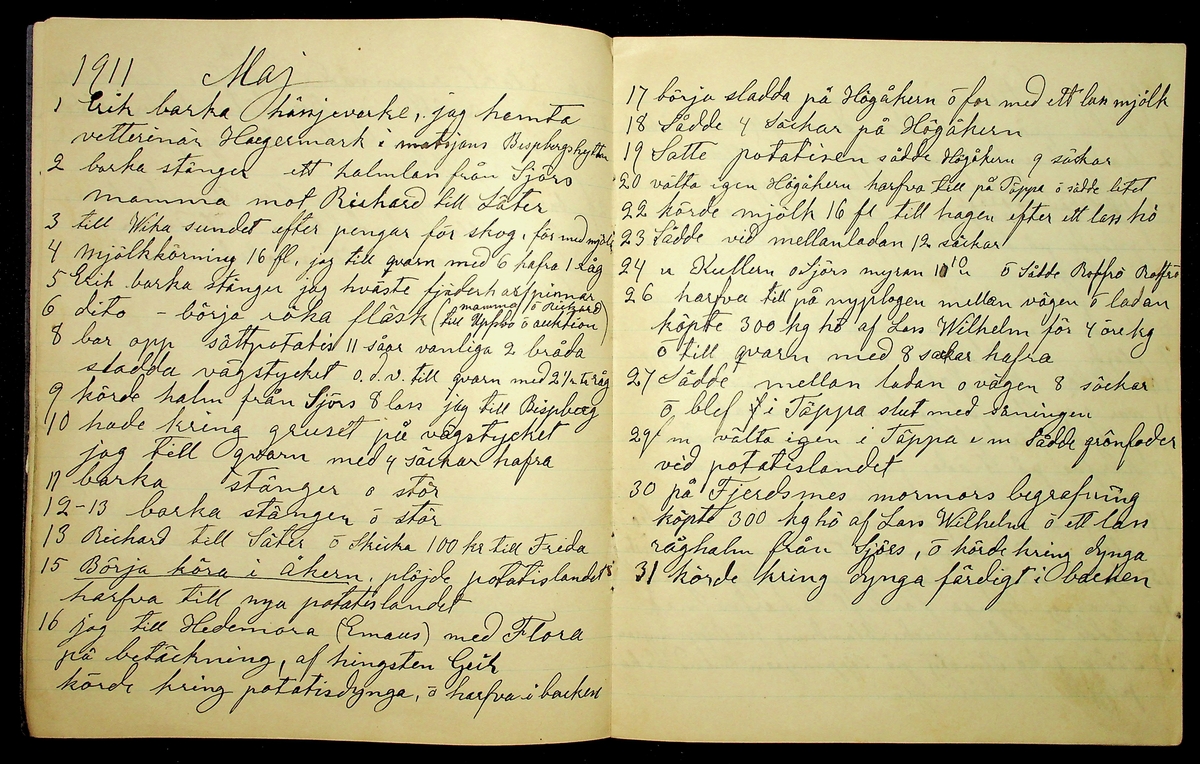 1911 Maj
1 Erik barka hässjevirke, jag hemta
vetterinär Haegermark i matsjans Bispbergshyttan
2 barka stänger ett halmlan från Sjörs
mamma mot Richard till Säter
3 till Wika sundet efter pengar för skog, för med mjölk
4 mjölkkörning 16 fl, jag till qvarn med 6 hafra 1 råg
5 Erik barka stänger jag hväste fjäderharfpinnar
6 dito - börja röka fläsk (mamma ö Richard
till Uppbo ö auktion)
8 bar opp sättpotatis 11 såar vanliga 2 bråda
sladda vägstycket o.d.v. till qvarn med 2½ ta råg
9 körde halm från Sjörs 8 lass jag till Bispberg
10 hade kring gruset på vägstycket
jag till qvarn med 4 säckar hafra
11 barka stänger o stör
12-13 barka stänger ö stör
13 Richard till Säter ö skicka 100 kr till Frida
15 Börja köra i åkern, plöjde potatislandet
harfva till nya potatislandet
16 jag till Hedemora (Emaus) med Flora
på betäckning, af hingsten Geik
körde kring potatisdynga, ö harfva i backen
17 börja sladda på Högåkern ö for med ett lass mjölk
18 Sådde 4 säckar på Högåkern
19 Satte potatisen sådde Högåkern 9 säckar
20 välta igen Högåkern harfva till på Täppa ö sådde litet
22 körde mjölk 16 fl till hagen efter ett lass hö
23 Sådde vid mellanladan 12 säckar
24 u Kullern o Sjörs myran 10 u ö Sådde Roffrö
26 harfva till på nyplogen mellan vägen ö ladan
köpte 300 kg hö af Lars Wilhelm för 4 öre kg
ö till qvarn med 8 säckar hafra
27 Sådde mellan ladan o vägen 8 säckar
ö blef i Täppa slut med såningen
29 f m välta igen i Täppa e m Sådde grönfoder
vid potatislandet
30 på Fjerdsmes mormors begrafning
köpte 300 kg hö af Lars Wilhelm ö ett lass
råghalm från Sjörs, ö körde kring dynga
31 körde kring dynga färdigt i backen